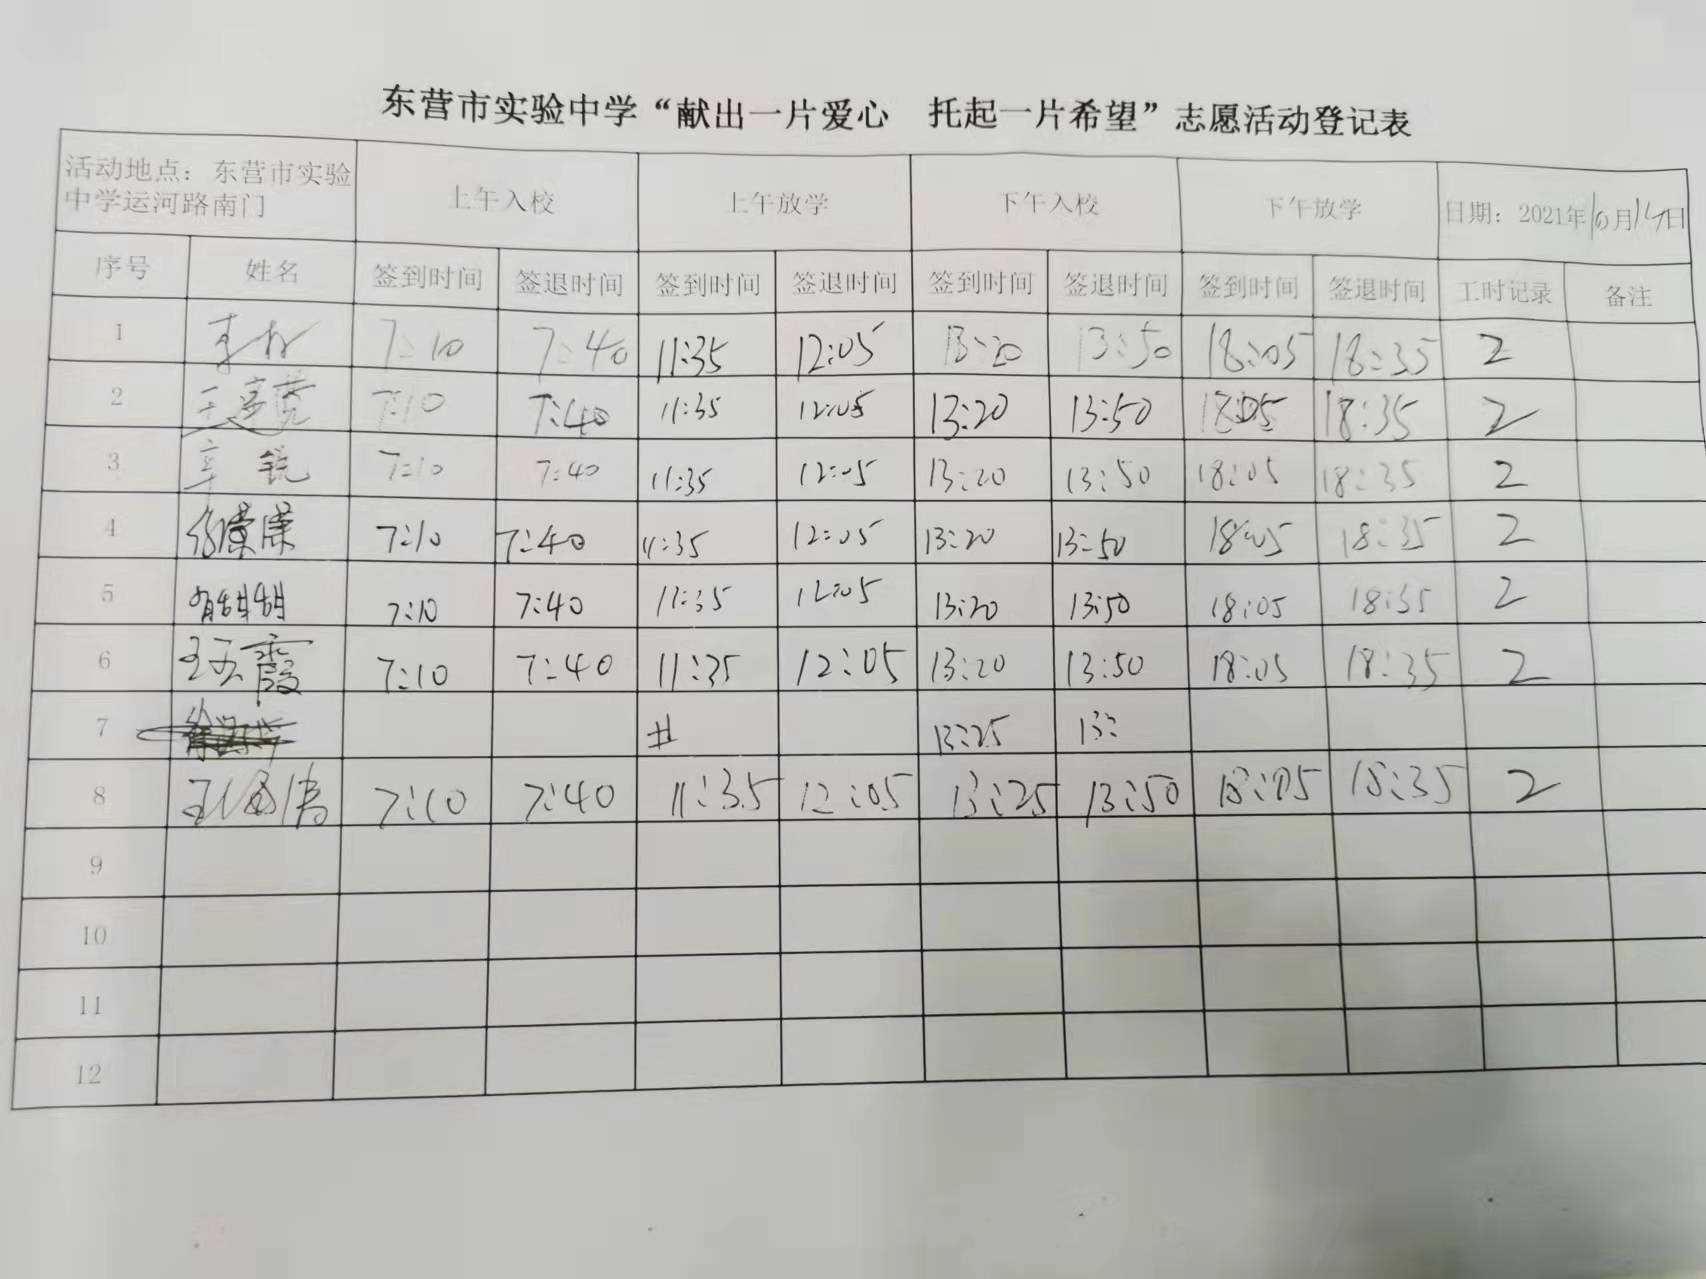 东营市实验中学“献出一片爱心 托起一片希望”志愿活动登记表
活动地点：东营市实验中学运河路南门 上午入校 上午放学 下午入校 下午放学 日期：2021年10月14日
序号 姓名 签到时间 签退时间 签到时间 签退时间 签到时间 签退时间 签到时间 签退时间 工时记录 备注
1 7:10 7:40 11:35 12:05 13:20 13:50 18:05 18:35 2
2 7:10 7:40 11:35 12:05 13:20 13:50 18:05 18:35 2
3 辛锐 7:10 7:40 11:35 12:05 13:20 13:50 18:05 18:35 2
4 7:10 7:40 11:35 12:05 13:20 13:50 18:05 18:35 2
5 7:10 7:40 11:35 12:05 13:20 13:50 18:05 18:35 2
6 王玉霞 7:10 7:40 11:35 12:05 13:20 13:50 18:05 18:35 2
7 13:25 13:
8 7:10 7:40 11:35 12:05 13:25 13:50 18:05 18:35 2
9
10
11
12